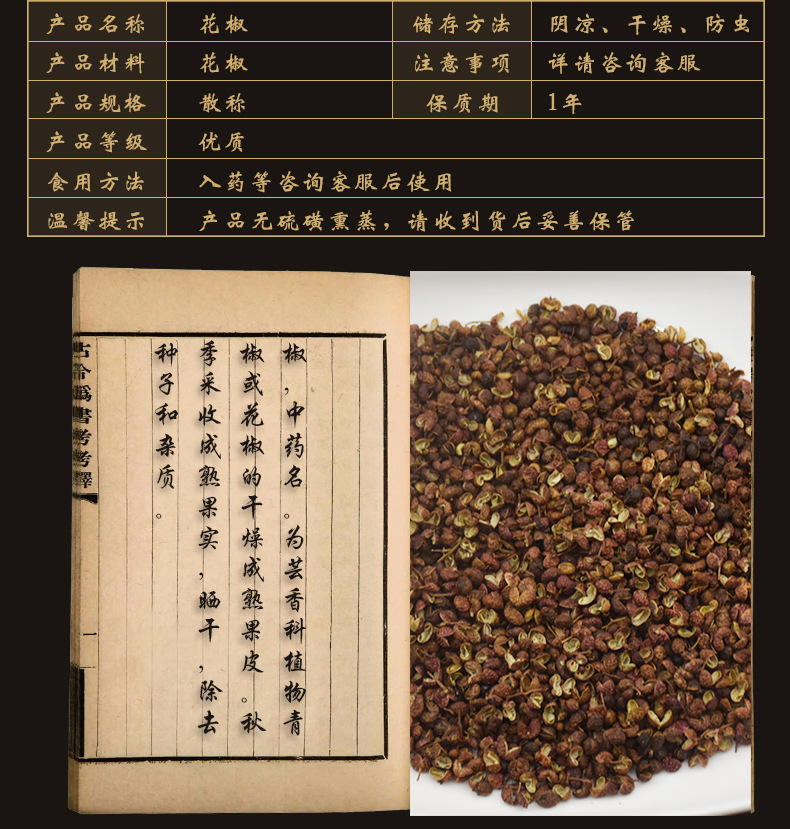 产品名称 花椒 储存方法 阴凉、干燥、防虫
产品材料 花椒 注意事项 详请咨询客服
产品规格 散称 保质期 1年
产品等级 优质
食用方法 入药等咨询客服后使用
温馨提示 产品无硫磺熏蒸，请收到货后妥善保管
椒，中药名。为芸香科植物青
椒或花椒的干燥成熟果皮。秋
季采收成熟果实，晒干，除去
种子和杂质。
古今偽書考考釋
一